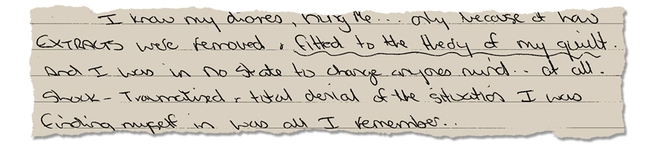 I know my diares, hurg me... only because of how
EXTRACTS were removed & fitted to the theory of my guilt.
And I was in no state to change anyones mind.. at all.
Shock - Traumatised & total denial of the situation I was
finding myself in was all I remember..